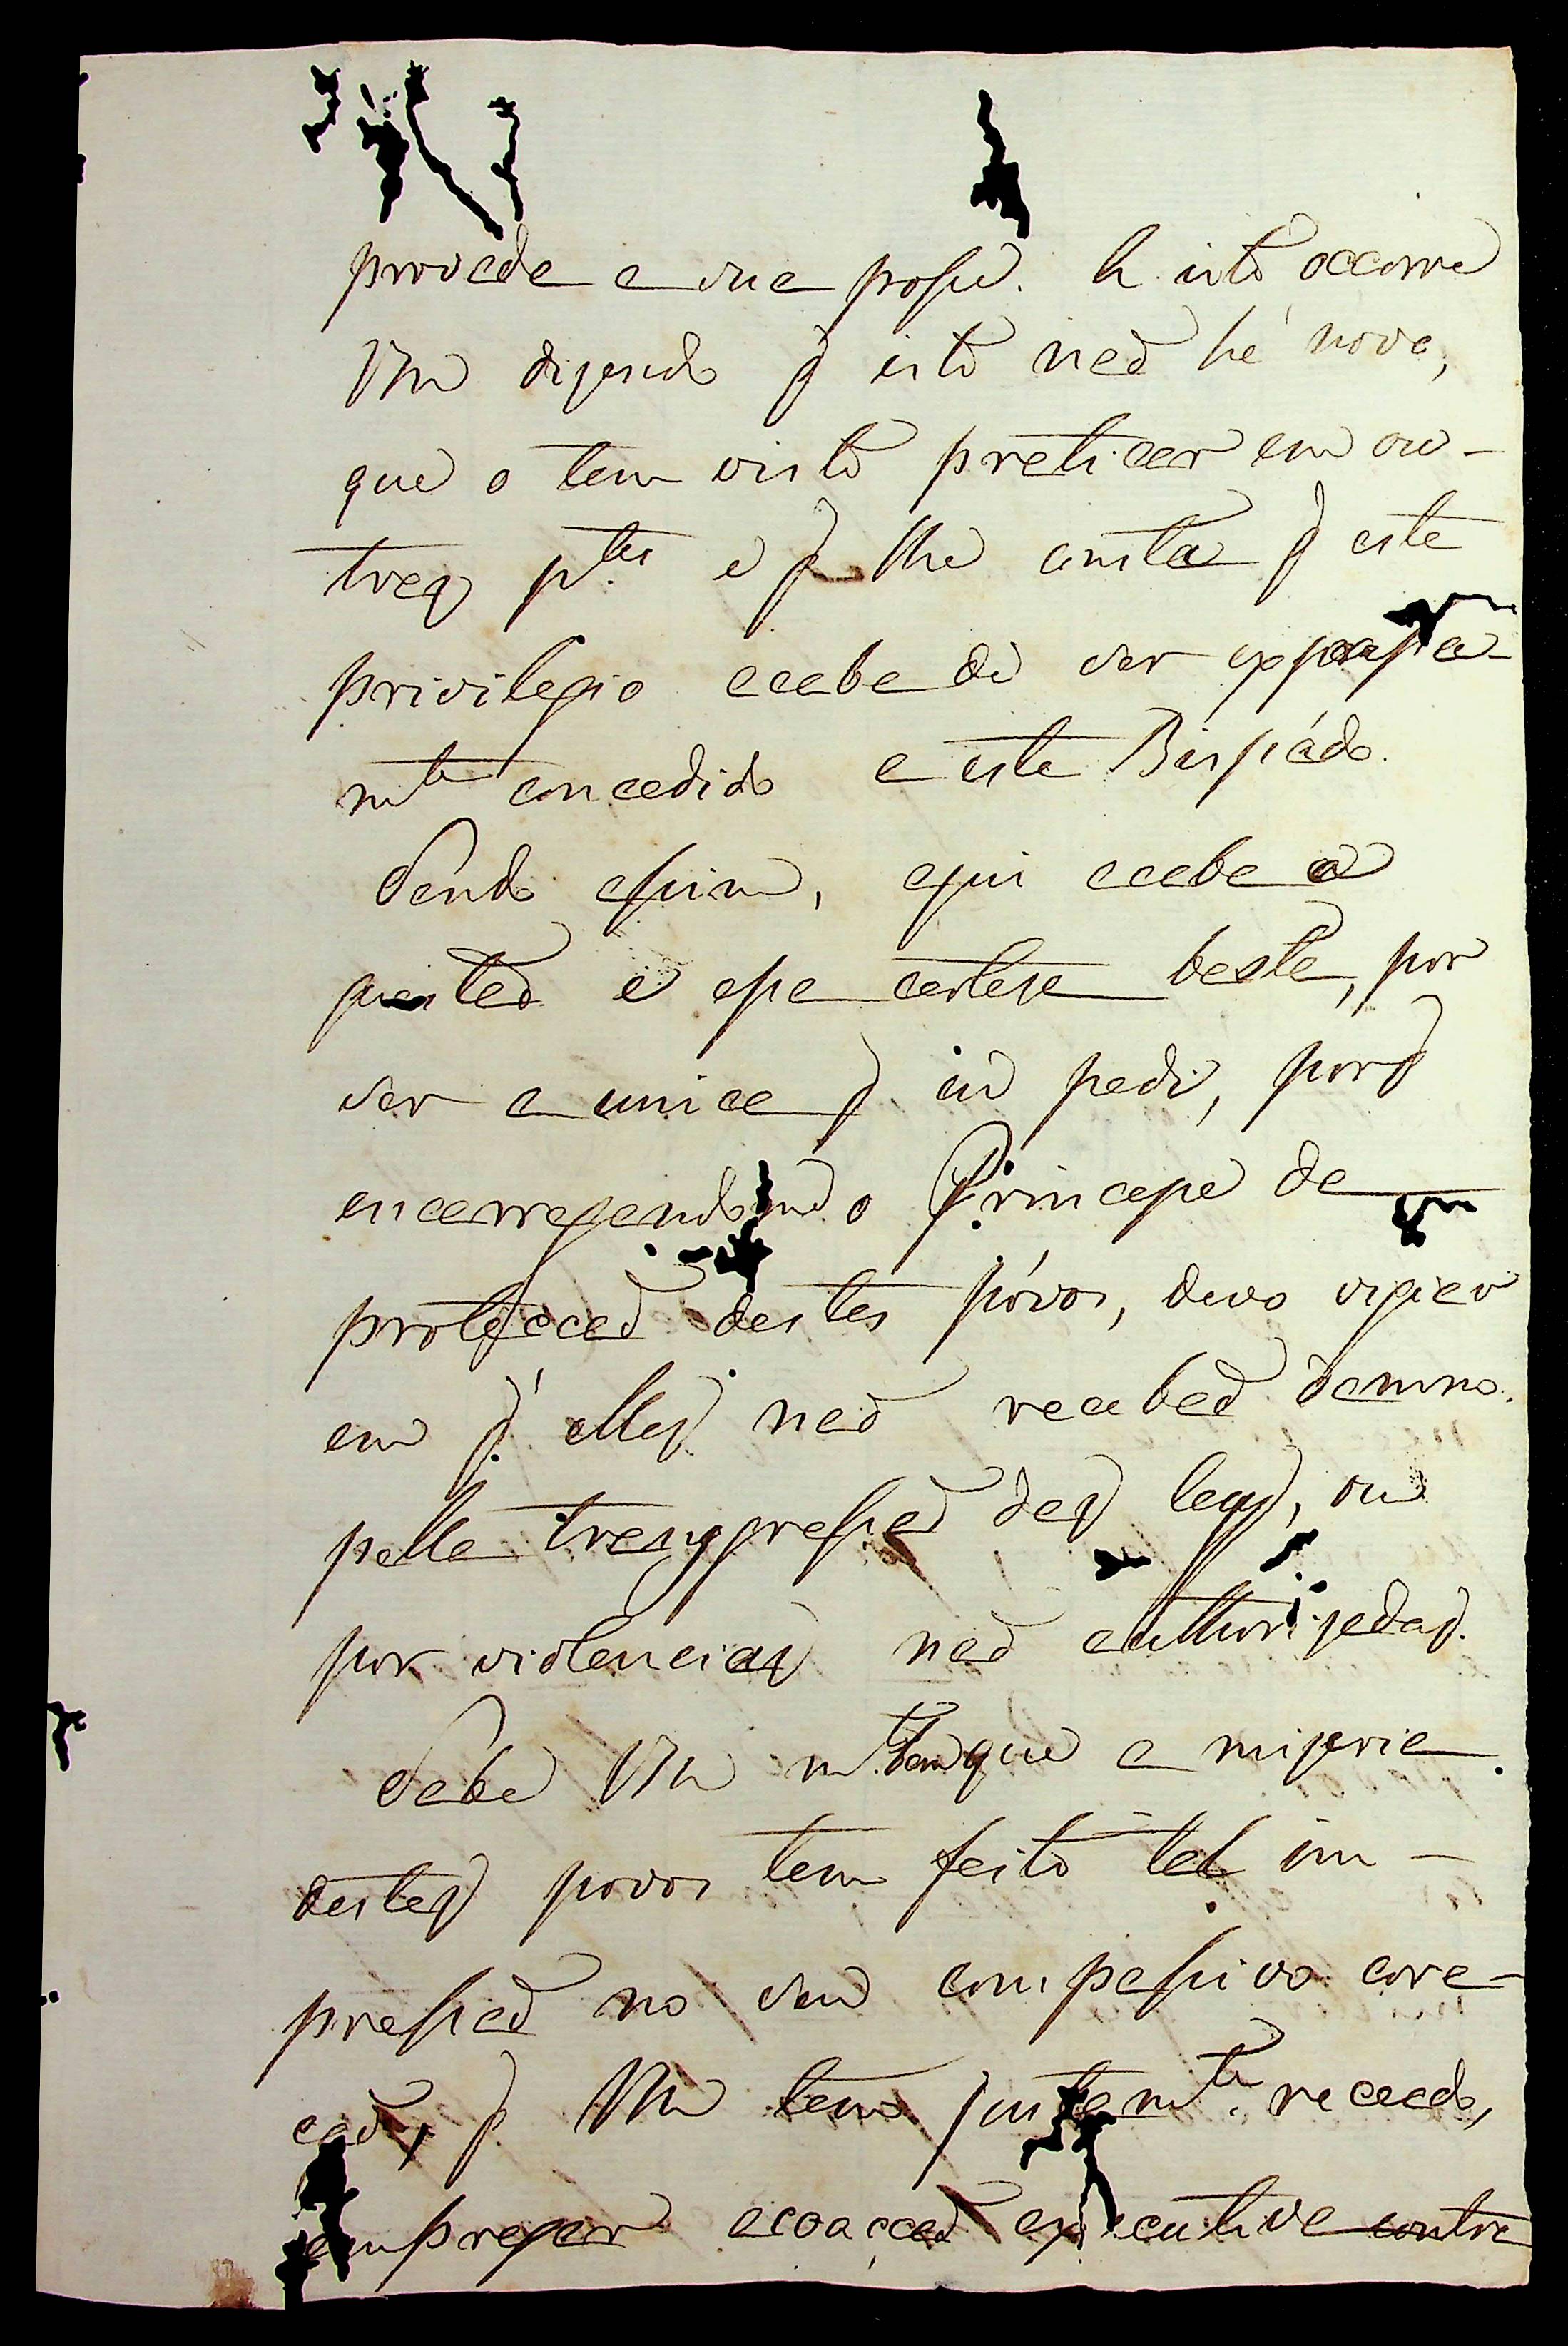 procede a sua posse. A isto occorre
Vm dizendo q isto naõ hé novo,
que o tem visto praticar em ou-
tras p.tes e q lhe consta q este
privilegio acaba de ser expressa-
m.te concedido a este Bispádo.
Sendo assim, aqui acaba a
questaõ e essa certeza basta, por
ser a unica q eu pedi, porq
encarregando me o Principe da
protecçaõ destes póvos, devo vigiar
em q elles naõ recebaõ damno
pella transgressaõ das leys, ou
por violencias naõ authorizadas.
Sabe Vm m.to bem que a miseria
destes povos tem feito tal im-
pressaõ no seu compassivo cora-
çaõ, q Vm tem justam.te receado,
empregar a coacçaõ executiva contra